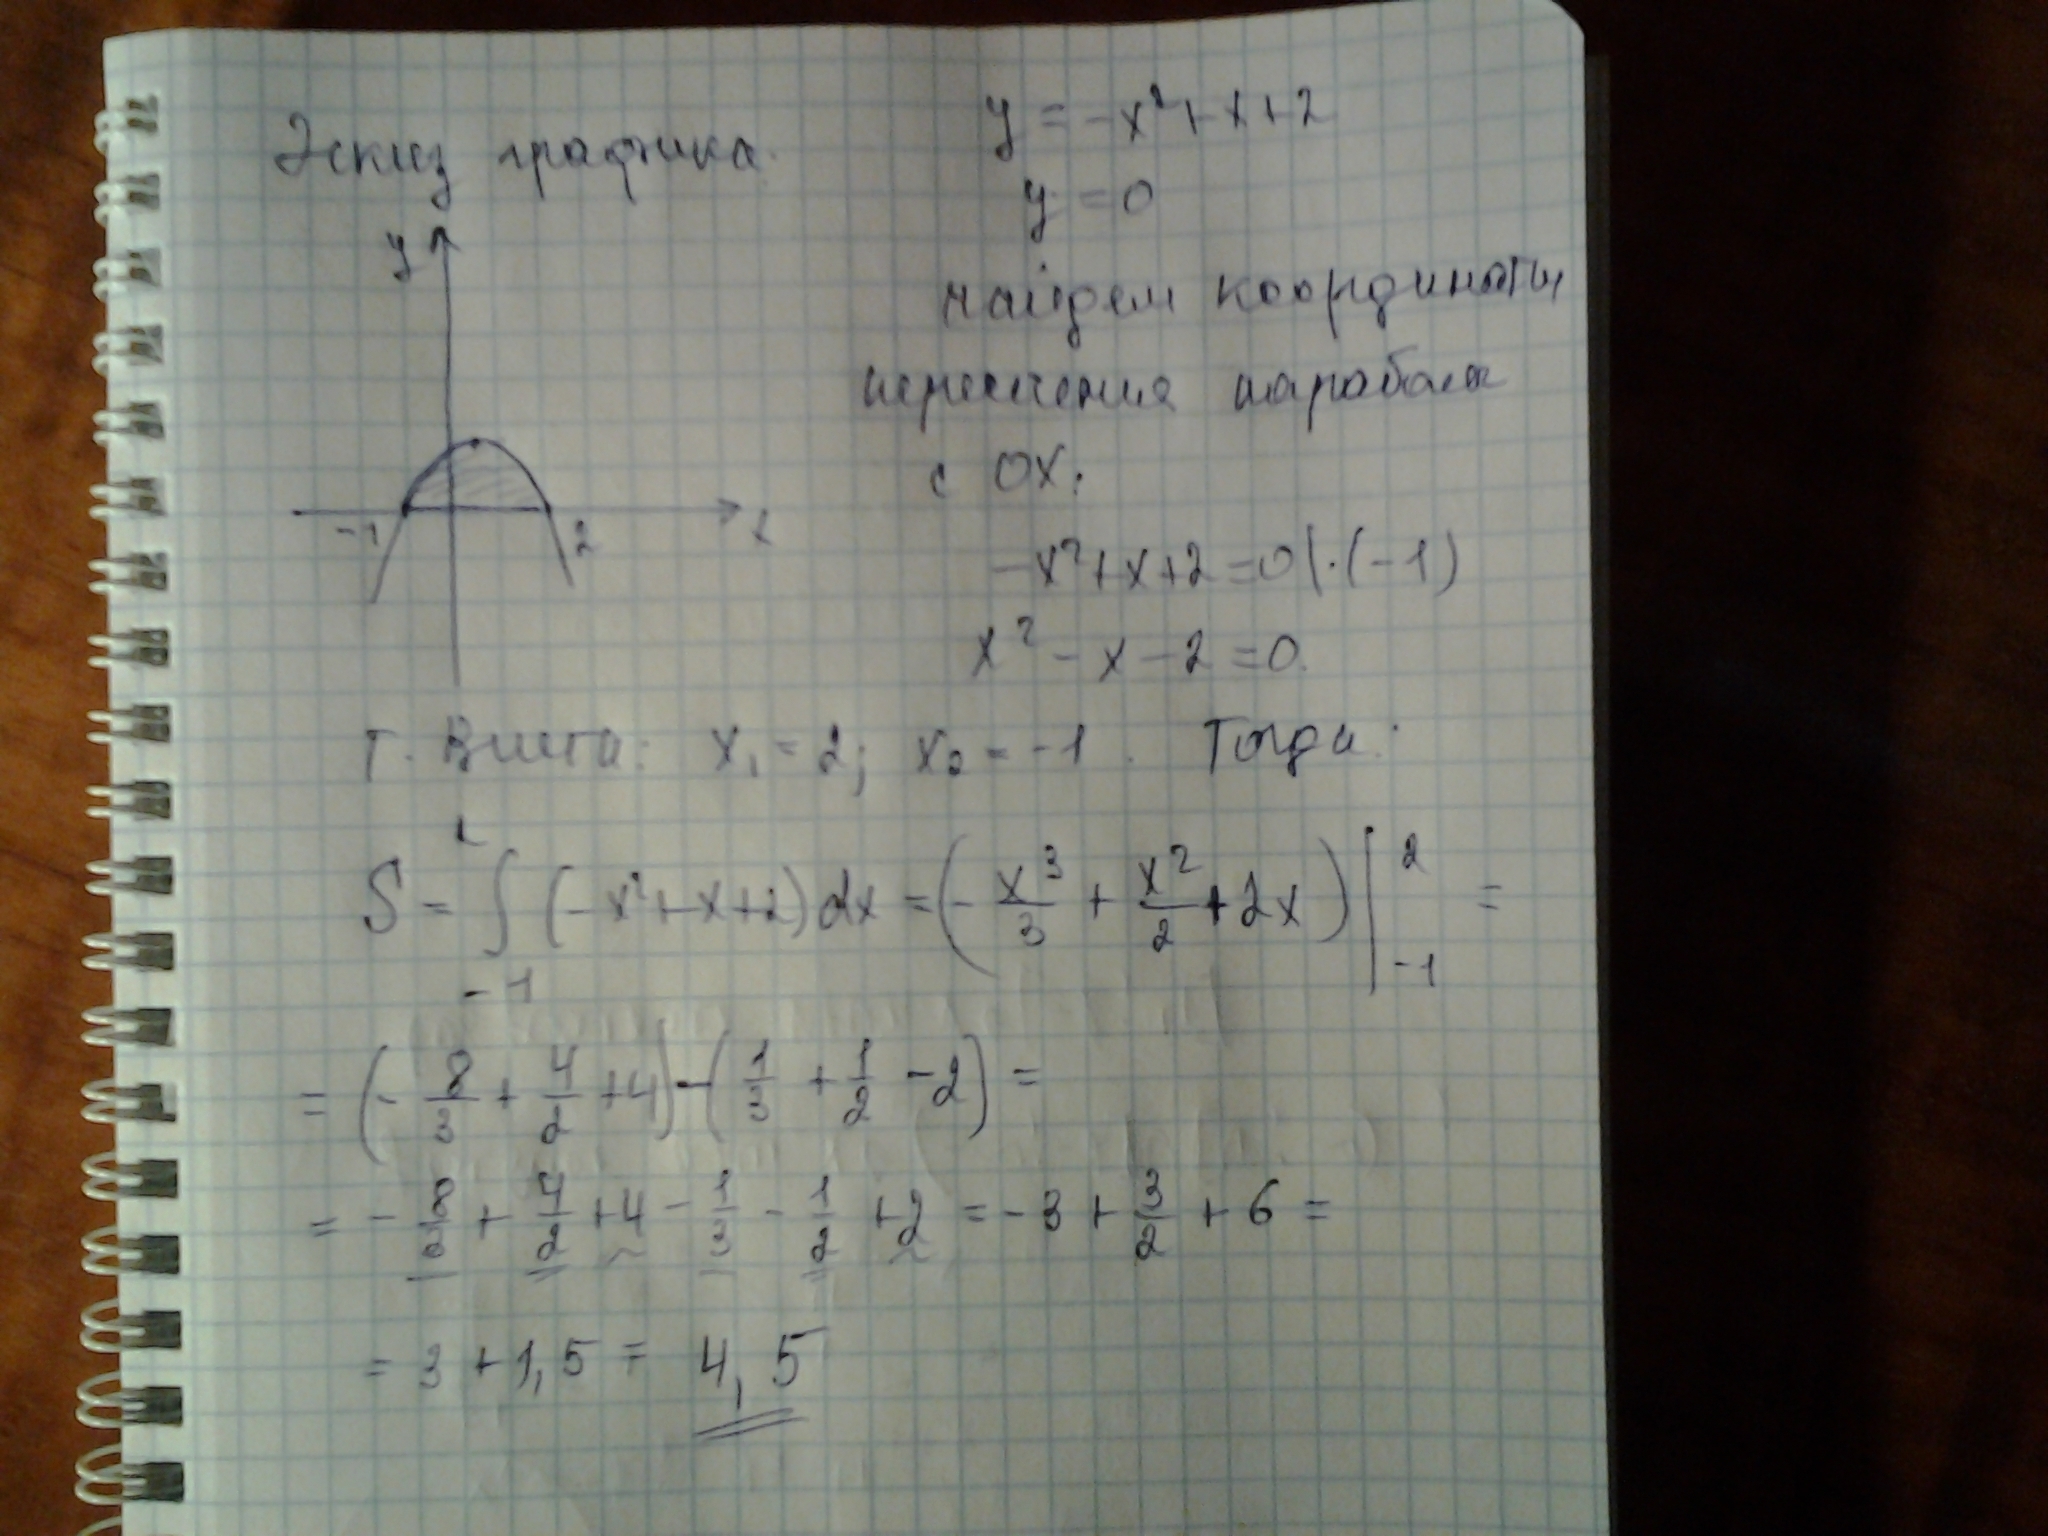 Эскиз графика.
y = -x² + x + 2
y = 0
y
найдем координаты
пересечения параболы
с OX:
-1 2 x
-x² + x + 2 = 0 | · (-1)
x² - x - 2 = 0.
т. Виета: x₁ = 2; x₂ = -1. Тогда:
S = ∫₋₁² (-x² + x + 2) dx = (- x³/3 + x²/2 + 2x) |₋₁² =
= (- 8/3 + 4/2 + 4) - (1/3 + 1/2 - 2) =
= - 8/3 + 4/2 + 4 - 1/3 - 1/2 + 2 = -3 + 3/2 + 6 =
= 3 + 1,5 = 4,5